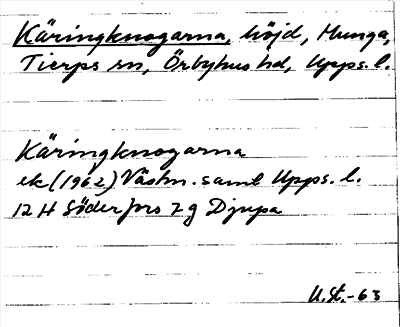 Käringknogarna, höjd, Munga,
Tierps sn, Örbyhus hd, Upps. l.
Käringknogarna
ek (1962) Västm. samt Upps. l.
12 H Söderfors 7 g Djupa
U. St. -63